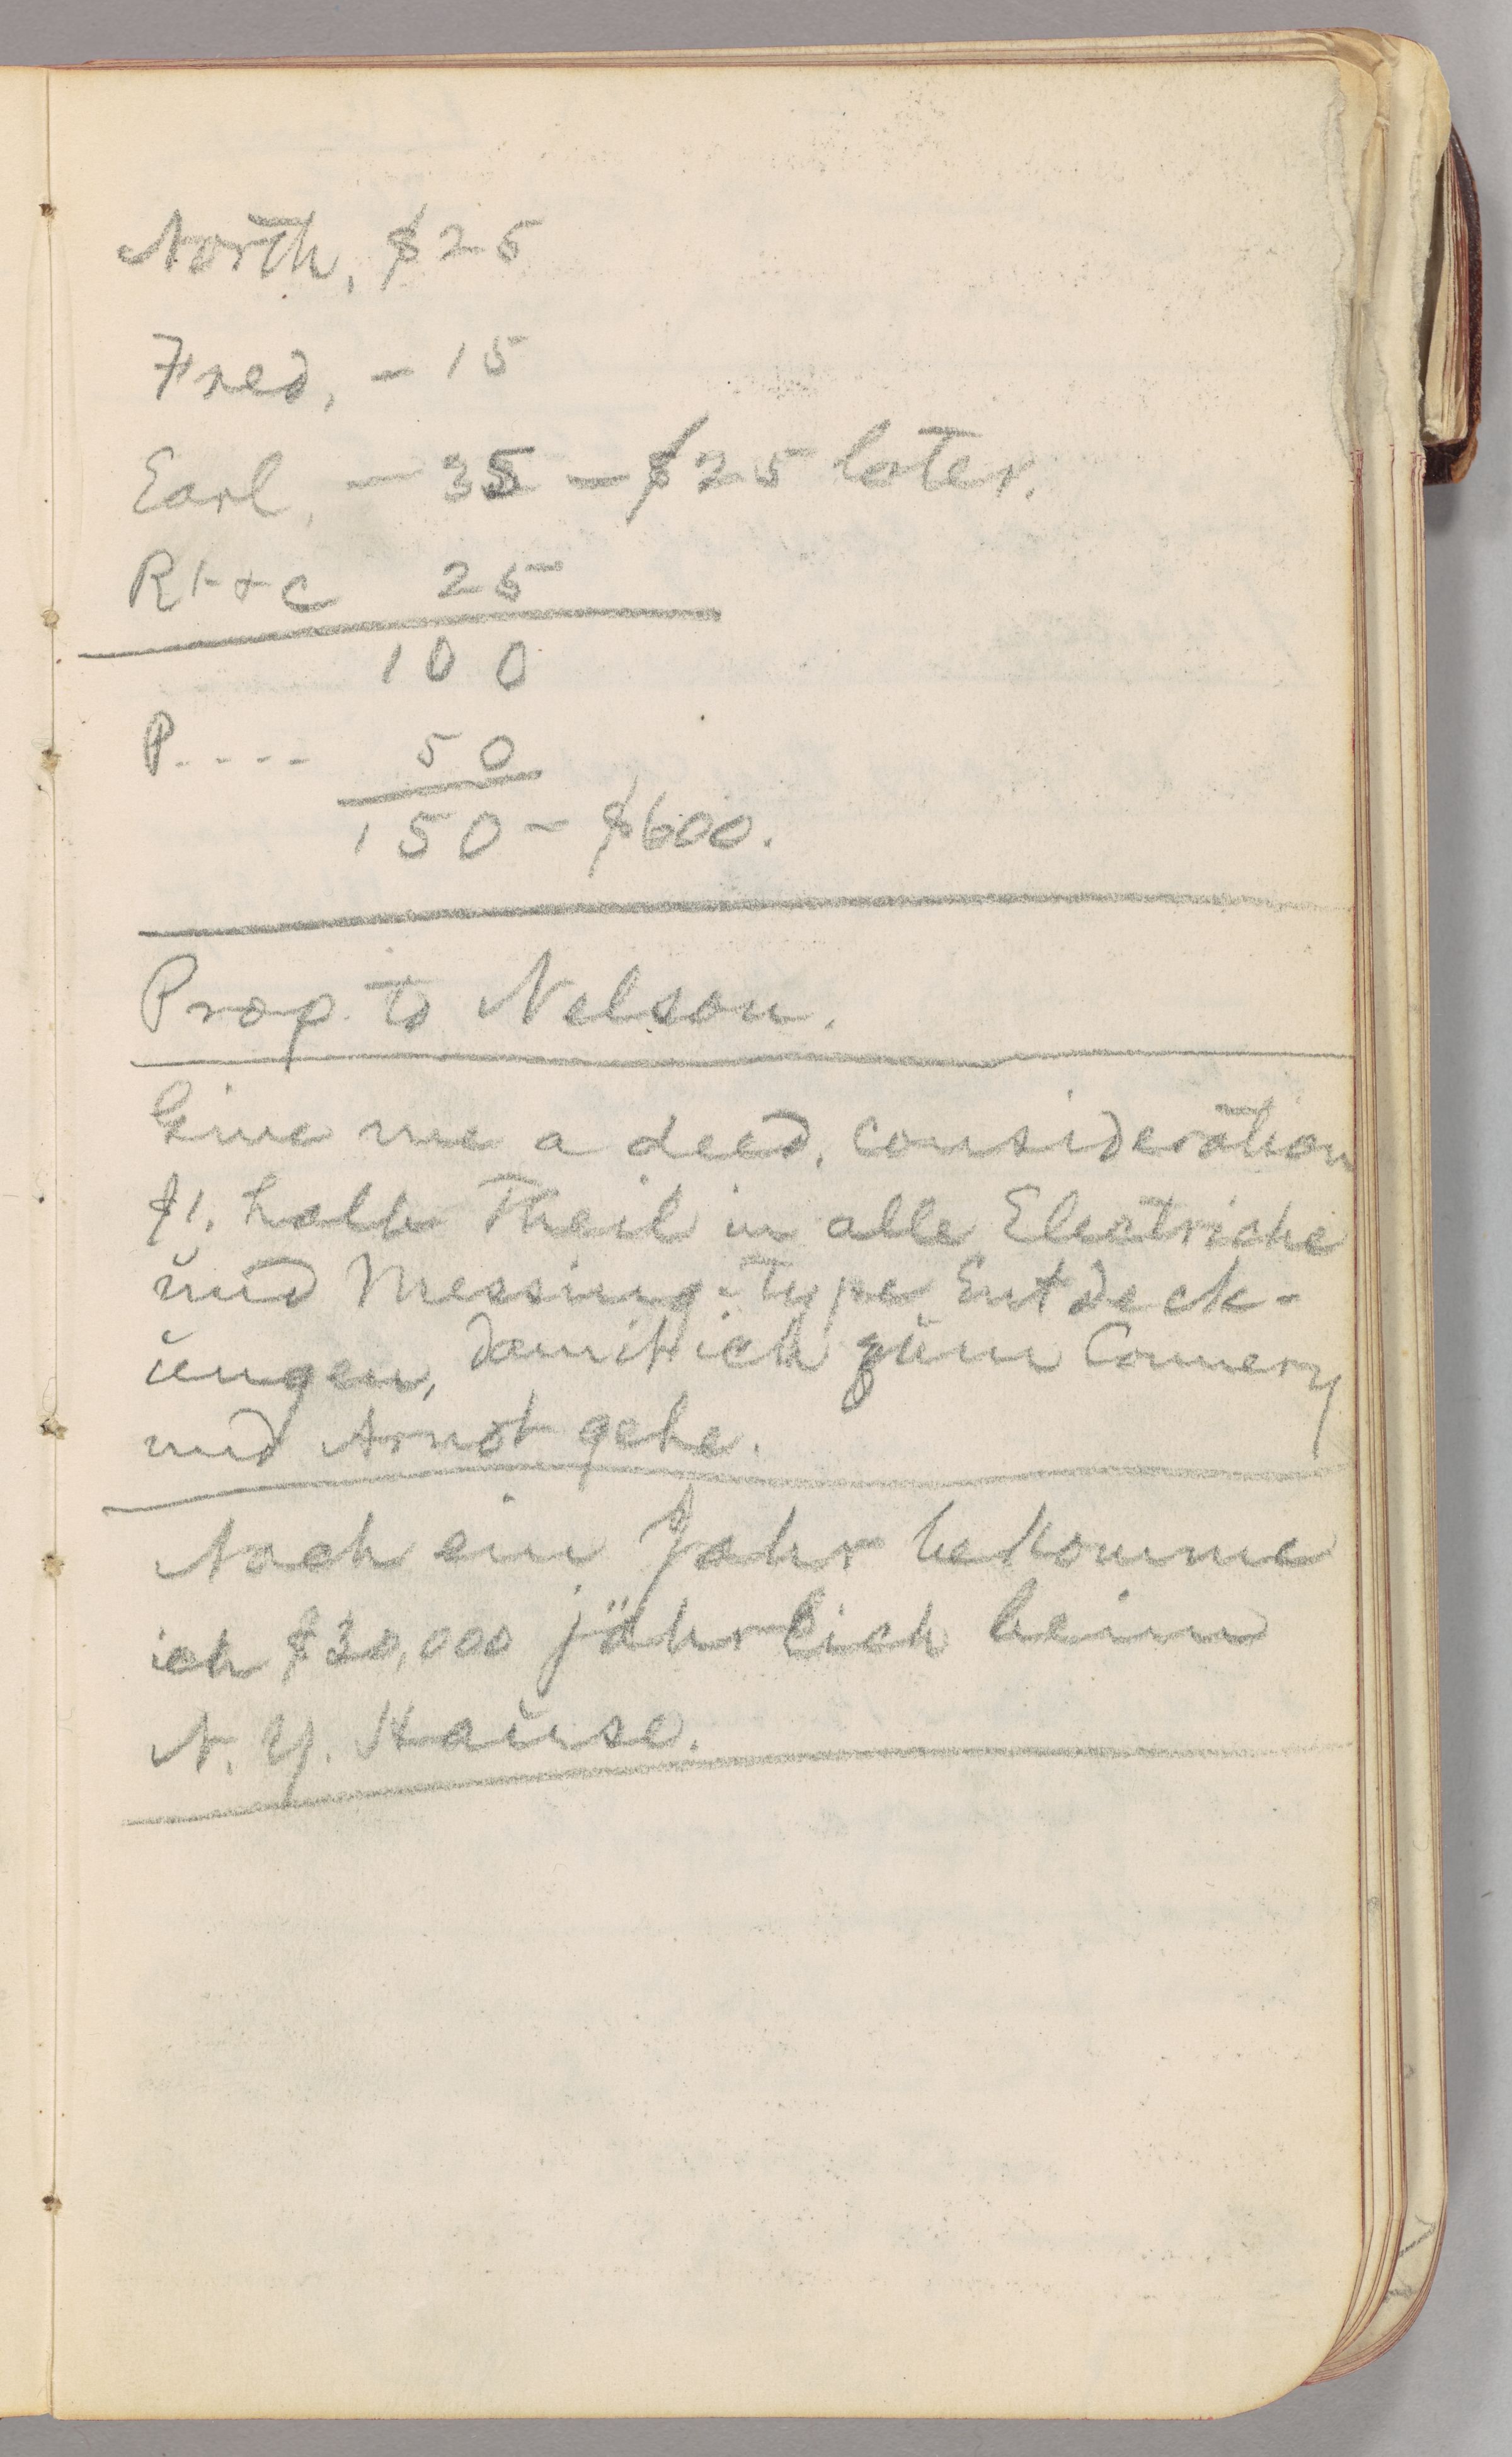 North, $25
Fred, – 15
Earl, – 35 – $25 later.
R I + c 25
100
P.---- 50
150 – $600.
Prop. to Nelson.
Give me a deed, consideration
$1, halb Theil in alle Electriche
ŭnd Messing-type Entdeck-
ŭngen, damit ich zŭm Connery
und Arnot gehe.
Nach ein Jahr bekomme
ich $30,000 jährlich beim
N. Y. Haŭse.